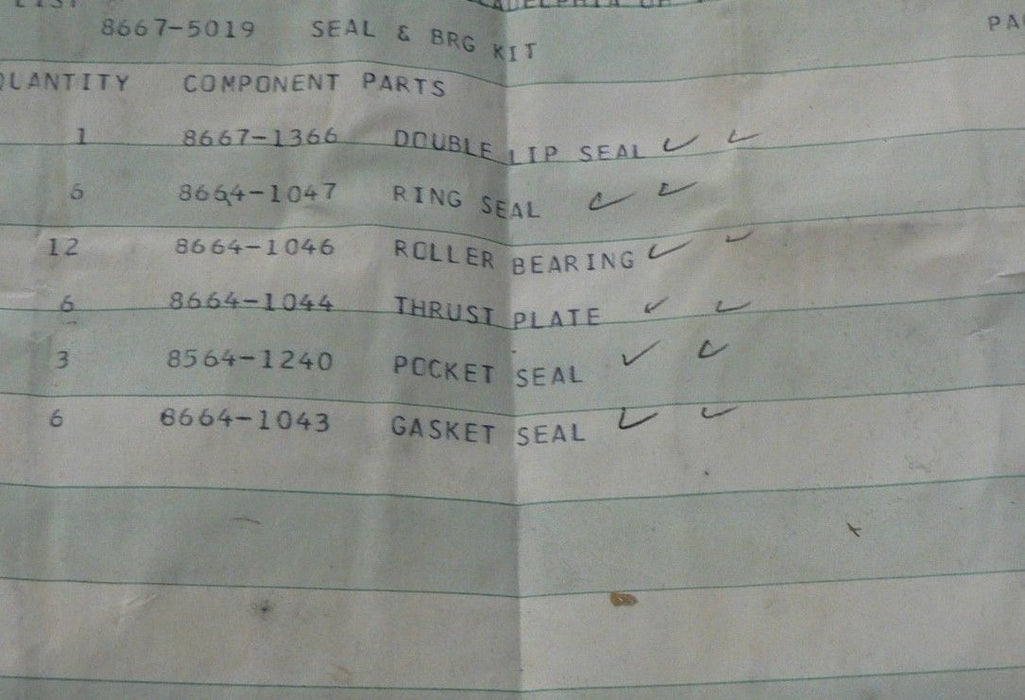 LIST
8667-5019 SEAL & BRG KIT
QUANTITY COMPONENT PARTS
1 8667-1366 DOUBLE LIP SEAL ✓ ✓
6 8664-1047 RING SEAL ✓ ✓
12 8664-1046 ROLLER BEARING ✓ ✓
6 8664-1044 THRUST PLATE ✓ ✓
3 8564-1240 POCKET SEAL ✓ ✓
6 8664-1043 GASKET SEAL ✓ ✓